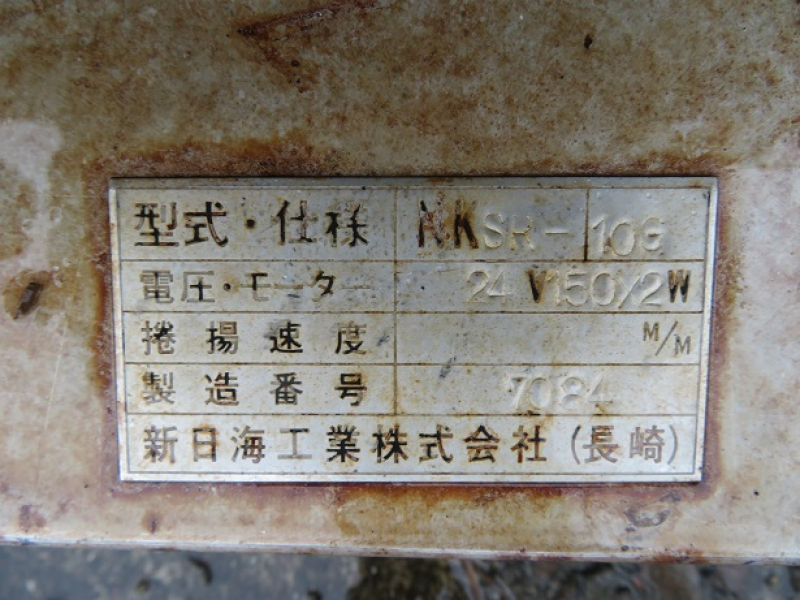 型式・仕様 NKSR-10G
電圧・モーター 24 V150X2W
捲揚速度 M/M
製造番号 7084
新日海工業株式会社(長崎)